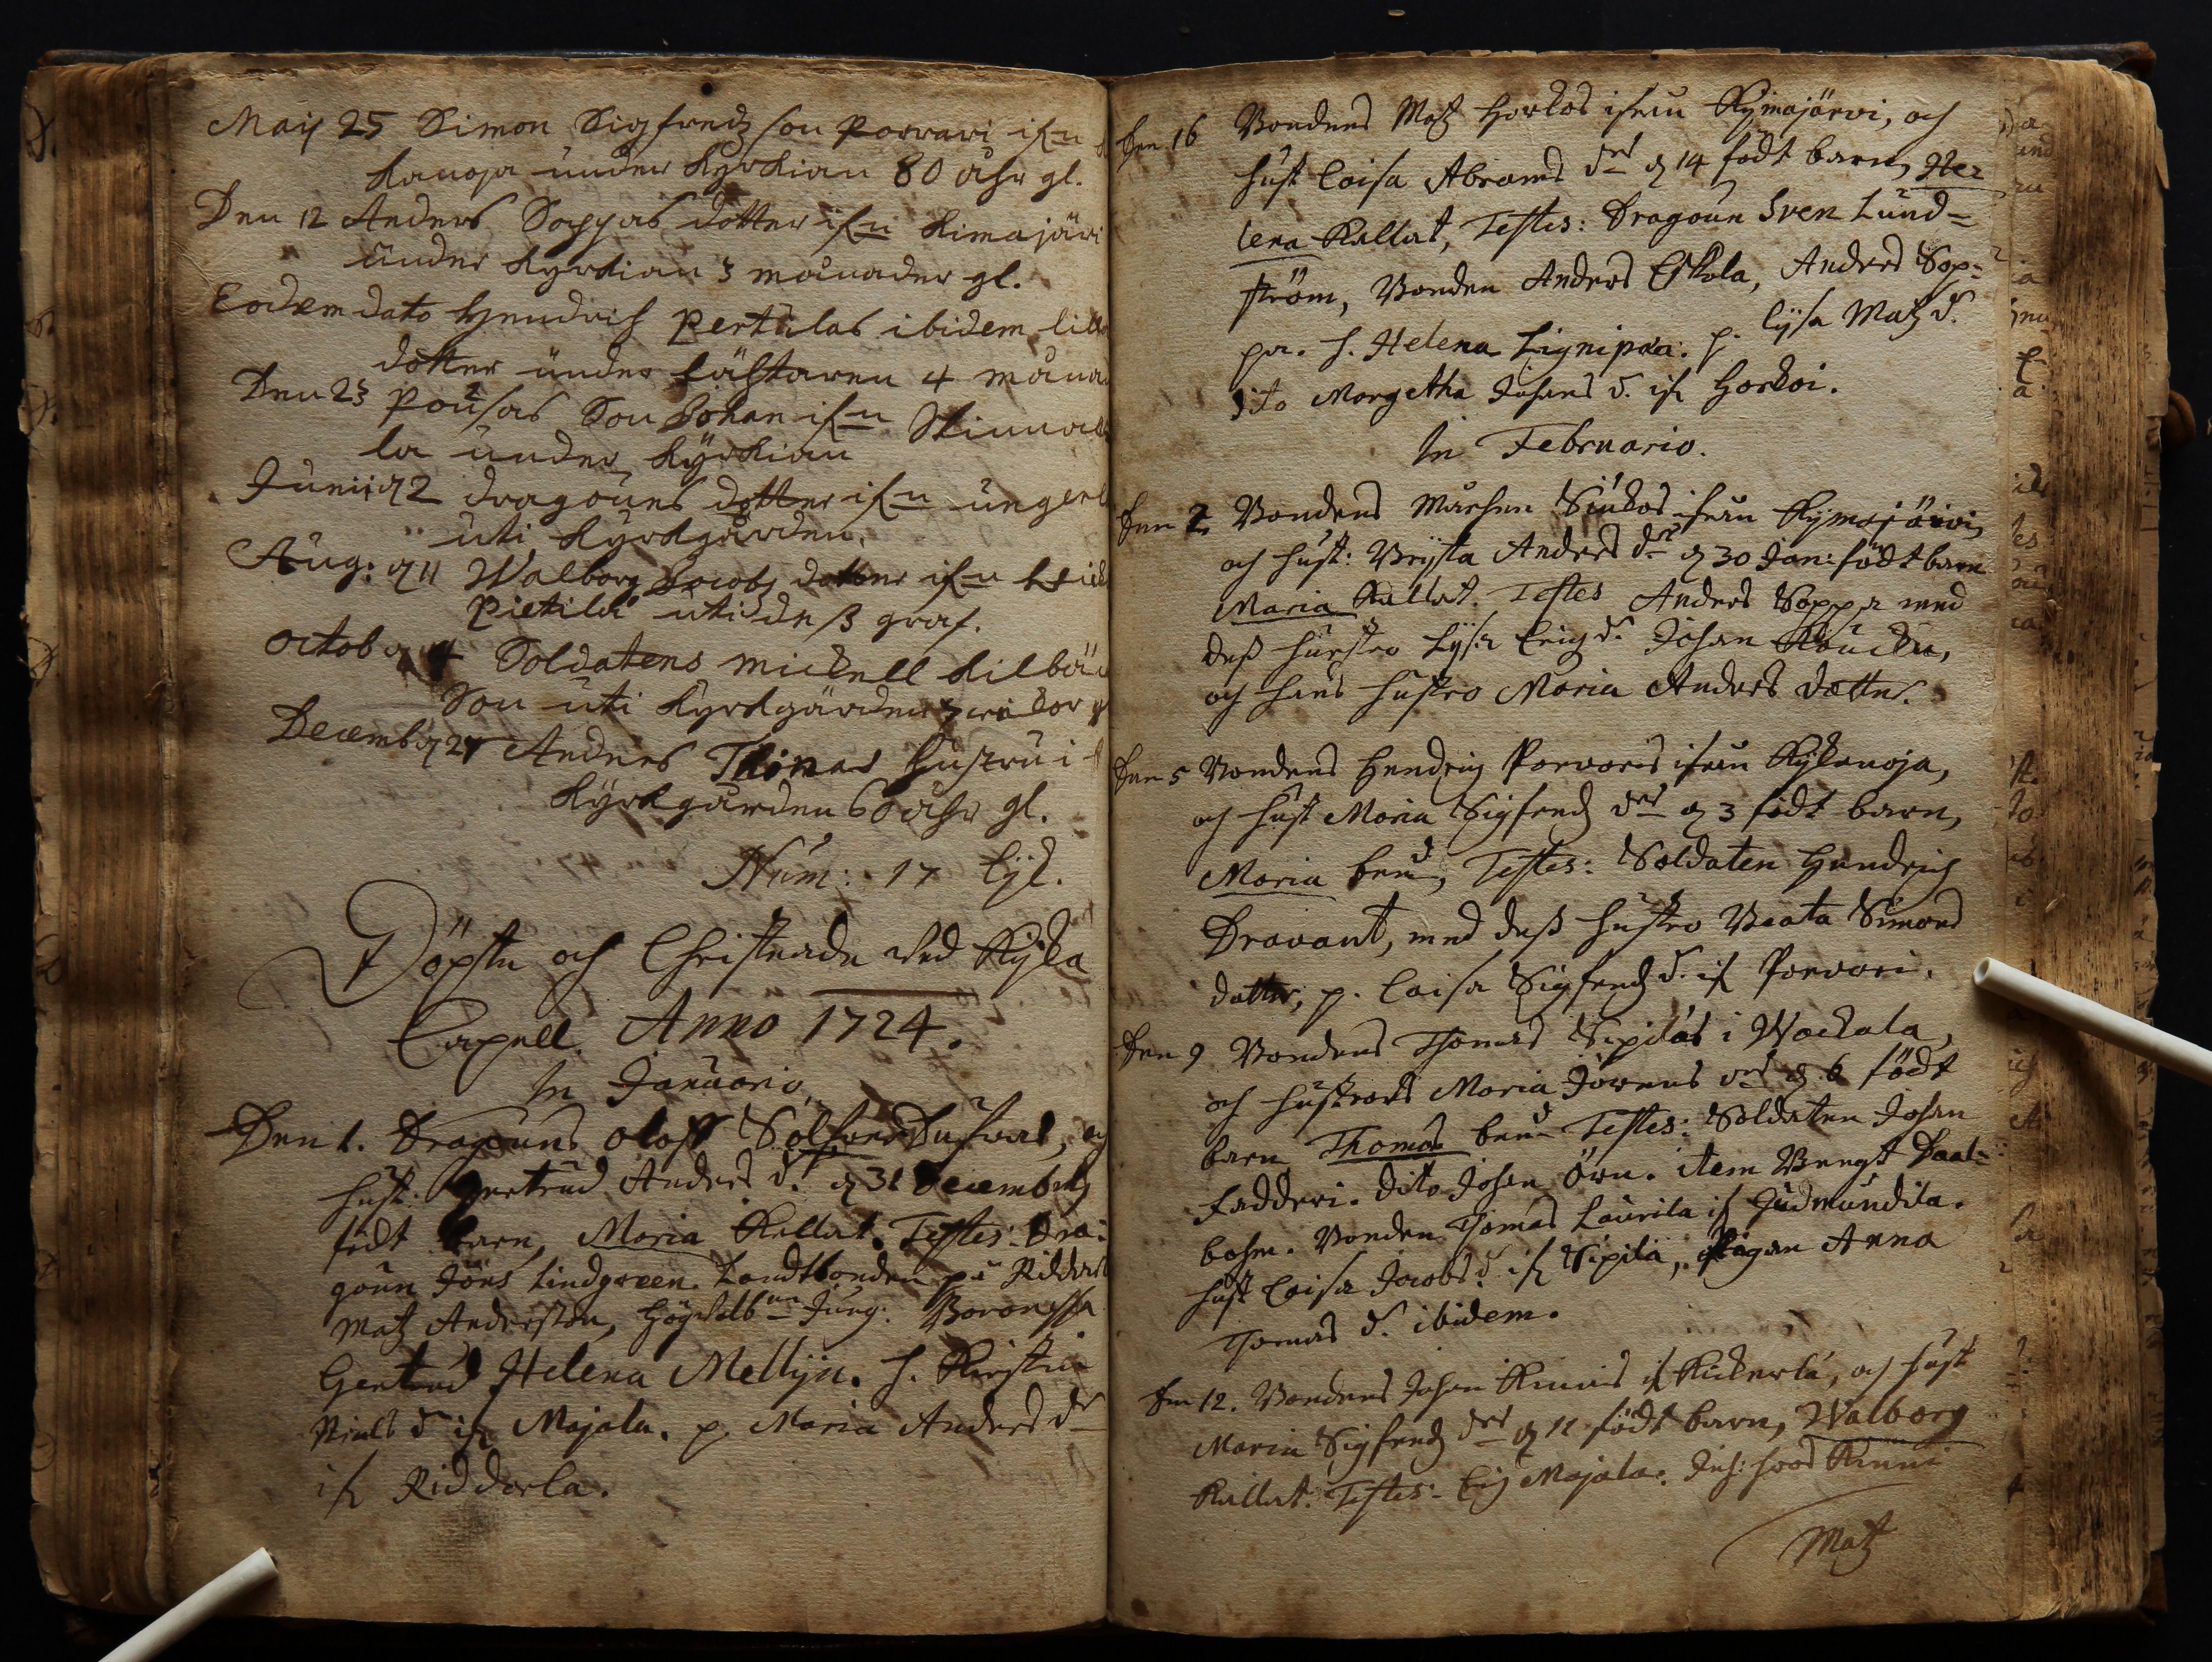 Maij 25 Simon Sigfredz son Porvari ifrn
kanoja under kyrkian 80 åhr gl.
Den 12 Anders Soppas dotter ifrn Kimajärvi
under kyrkian 3 månader gl.
Eodem dato Hendrich Pertulas ibidem lilla
dotter under fästaren 4 månad
Den 23 Pousas Son Johan ifrn
la under kyrkian
Junii d 2 dragouns dotter ifrn ungerla
uti kyrkgården.
Aug: d 11 Walborg Jacobs dotter ifrn
Pietilä uti deß graf.
Octob d 4 Soldatens mickell kilbäck
Son uti kyrkgården 3 wickor gl
Decemb d 27 Anders Thomas hustru i
kyrkgården 60 åhr gl.
Num: 17 lijk.
Döpte och Christnade wed Kyla
Capell. Anno 1724.
In Januario.
Den 1. Dragouns Oloff, och
hust: Gertrud Anders d. d 31 Decembris
födt barn, Maria kallat. Testes: Dra-
goun Jöns Lindgreen. Landtbonden på Ridderla
Matz Andersson, Högwälb. Jung: Baronessa
Gertrud Helena Mellijn. h. Kirstin
Niels d. if Majala. p. Maria Anders dr
if Ridderla.
Den 16 Bondens Matz Horkos ifrån Kymajärvi, och
hust Caisa Abrams dr d 14 födt barn, He-
lena kallat, Testes: Dragoun Sven Lund-
ström, Bonden Anders Eskola, Anders Sop-
pa. h. Helena Lignipää. p. Lysa Matz d.
dito Margetha Johans d. if Horkoi.
In Februario.
Den 2 Bondens Mårten Siukos ifrån Kymajärvi,
och hust: Brijta Anders dr d 30 Jan: födt barn
Maria kallat. Testes Anders Soppa med
deß hustro Lysa Erich d. Johan
och hans hustro Maria Anders dotter.
Den 5 Bondens Hendrich Porvaris ifrån Kylänoja,
och hust Maria Sigfredz dr d 3 födt barn,
Maria bend, Testes: Soldaten Hendrich
Dravant, med deß hustro Beata Simons
dotter, p. Caisa Sigfredz d. if Porvari.
Den 9 Bondens Thomas Sipiläs i Wockala,
och hustrors Maria Jörens dr d 6 födt
barn Thomas bend Testes: Soldaten Johan
Fadderi. dito Johan Örn. item Bengt Daal-
bohm. Bonden Thomas Laurila if Judmundila.
hust Caisa Jacobs d. if Sipilä, Pigan Anna
Thomas d. ibidem.
Den 12. Bondens Johan Knuis if Kickerla, och hust
Maria Sigfredz dr d 11 födt barn, Walborg
kallat. Testes: Erich Majala. Joh: hoos Knuui
Matz